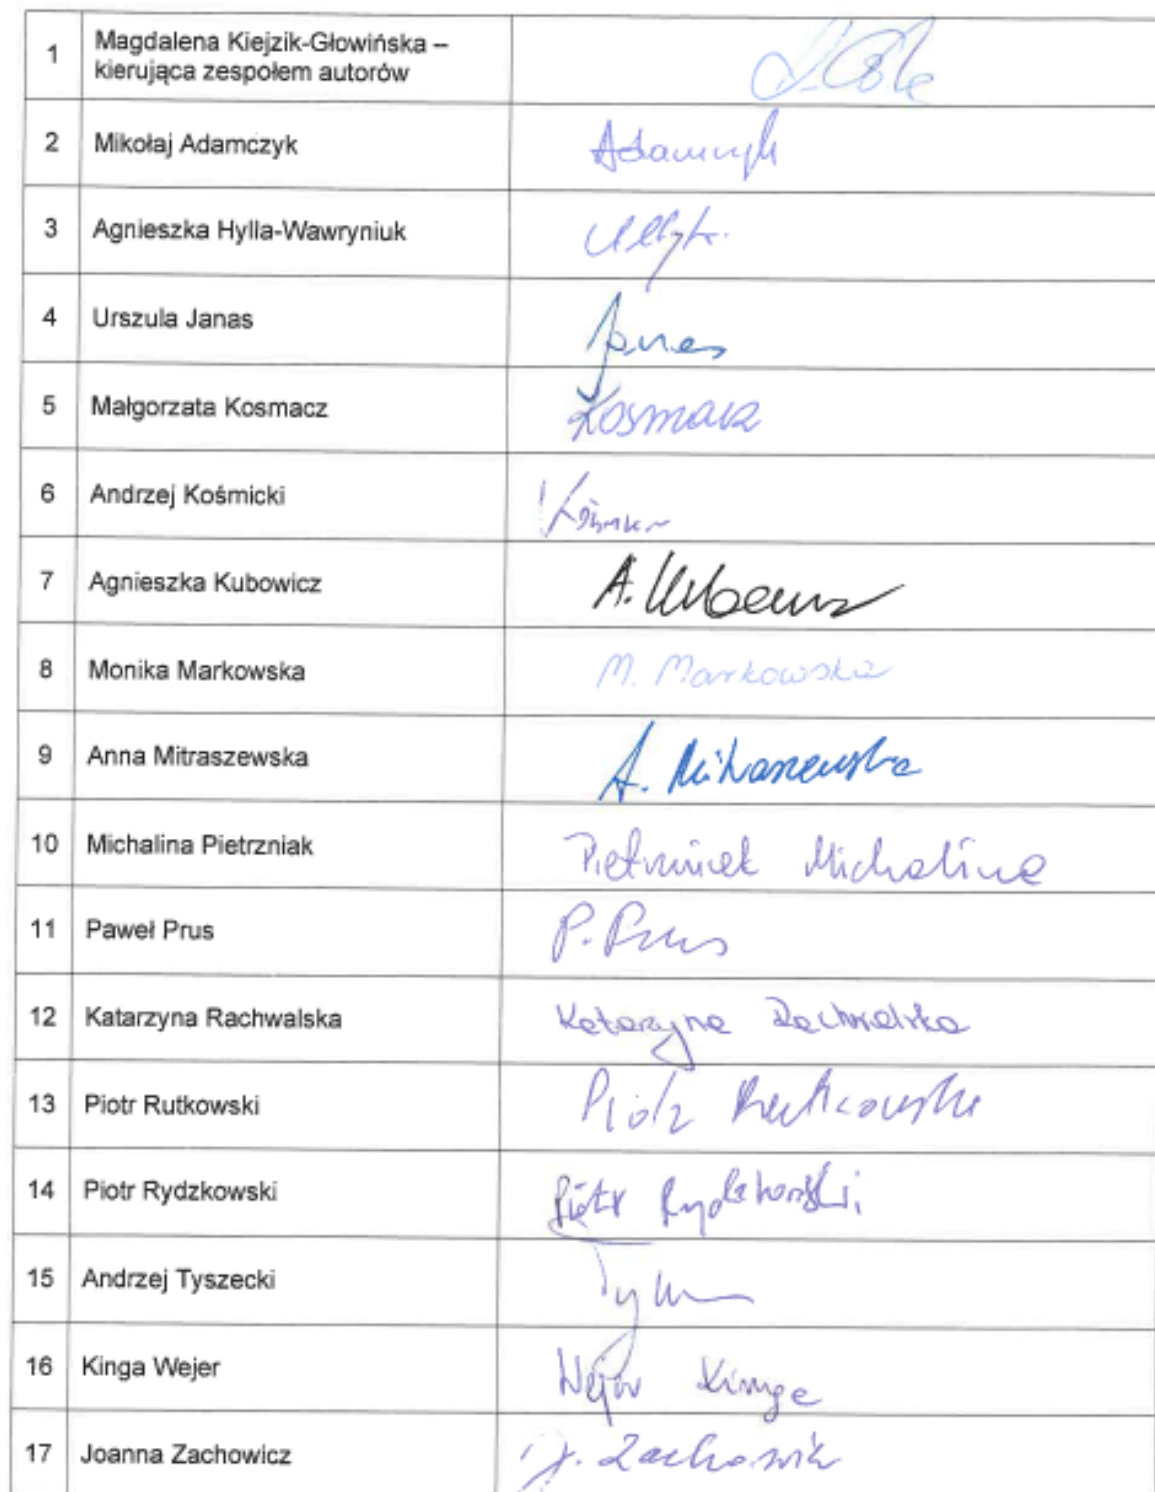 1 Magdalena Kiejzik-Głowińska –
kierująca zespołem autorów
2 Mikołaj Adamczyk Adamczyk
3 Agnieszka Hylla-Wawryniuk
4 Urszula Janas Janas
5 Małgorzata Kosmacz Kosmacz
6 Andrzej Kośmicki
7 Agnieszka Kubowicz A.
8 Monika Markowska M. Markowska
9 Anna Mitraszewska A. Mitraszewska
10 Michalina Pietrzniak Pietrzniak Michalina
11 Paweł Prus P. Prus
12 Katarzyna Rachwalska Katarzyna Rachwalska
13 Piotr Rutkowski Piotr Rutkowski
14 Piotr Rydzkowski Piotr Rydzkowski
15 Andrzej Tyszecki
16 Kinga Wejer Wejer Kinga
17 Joanna Zachowicz J. Zachowicz